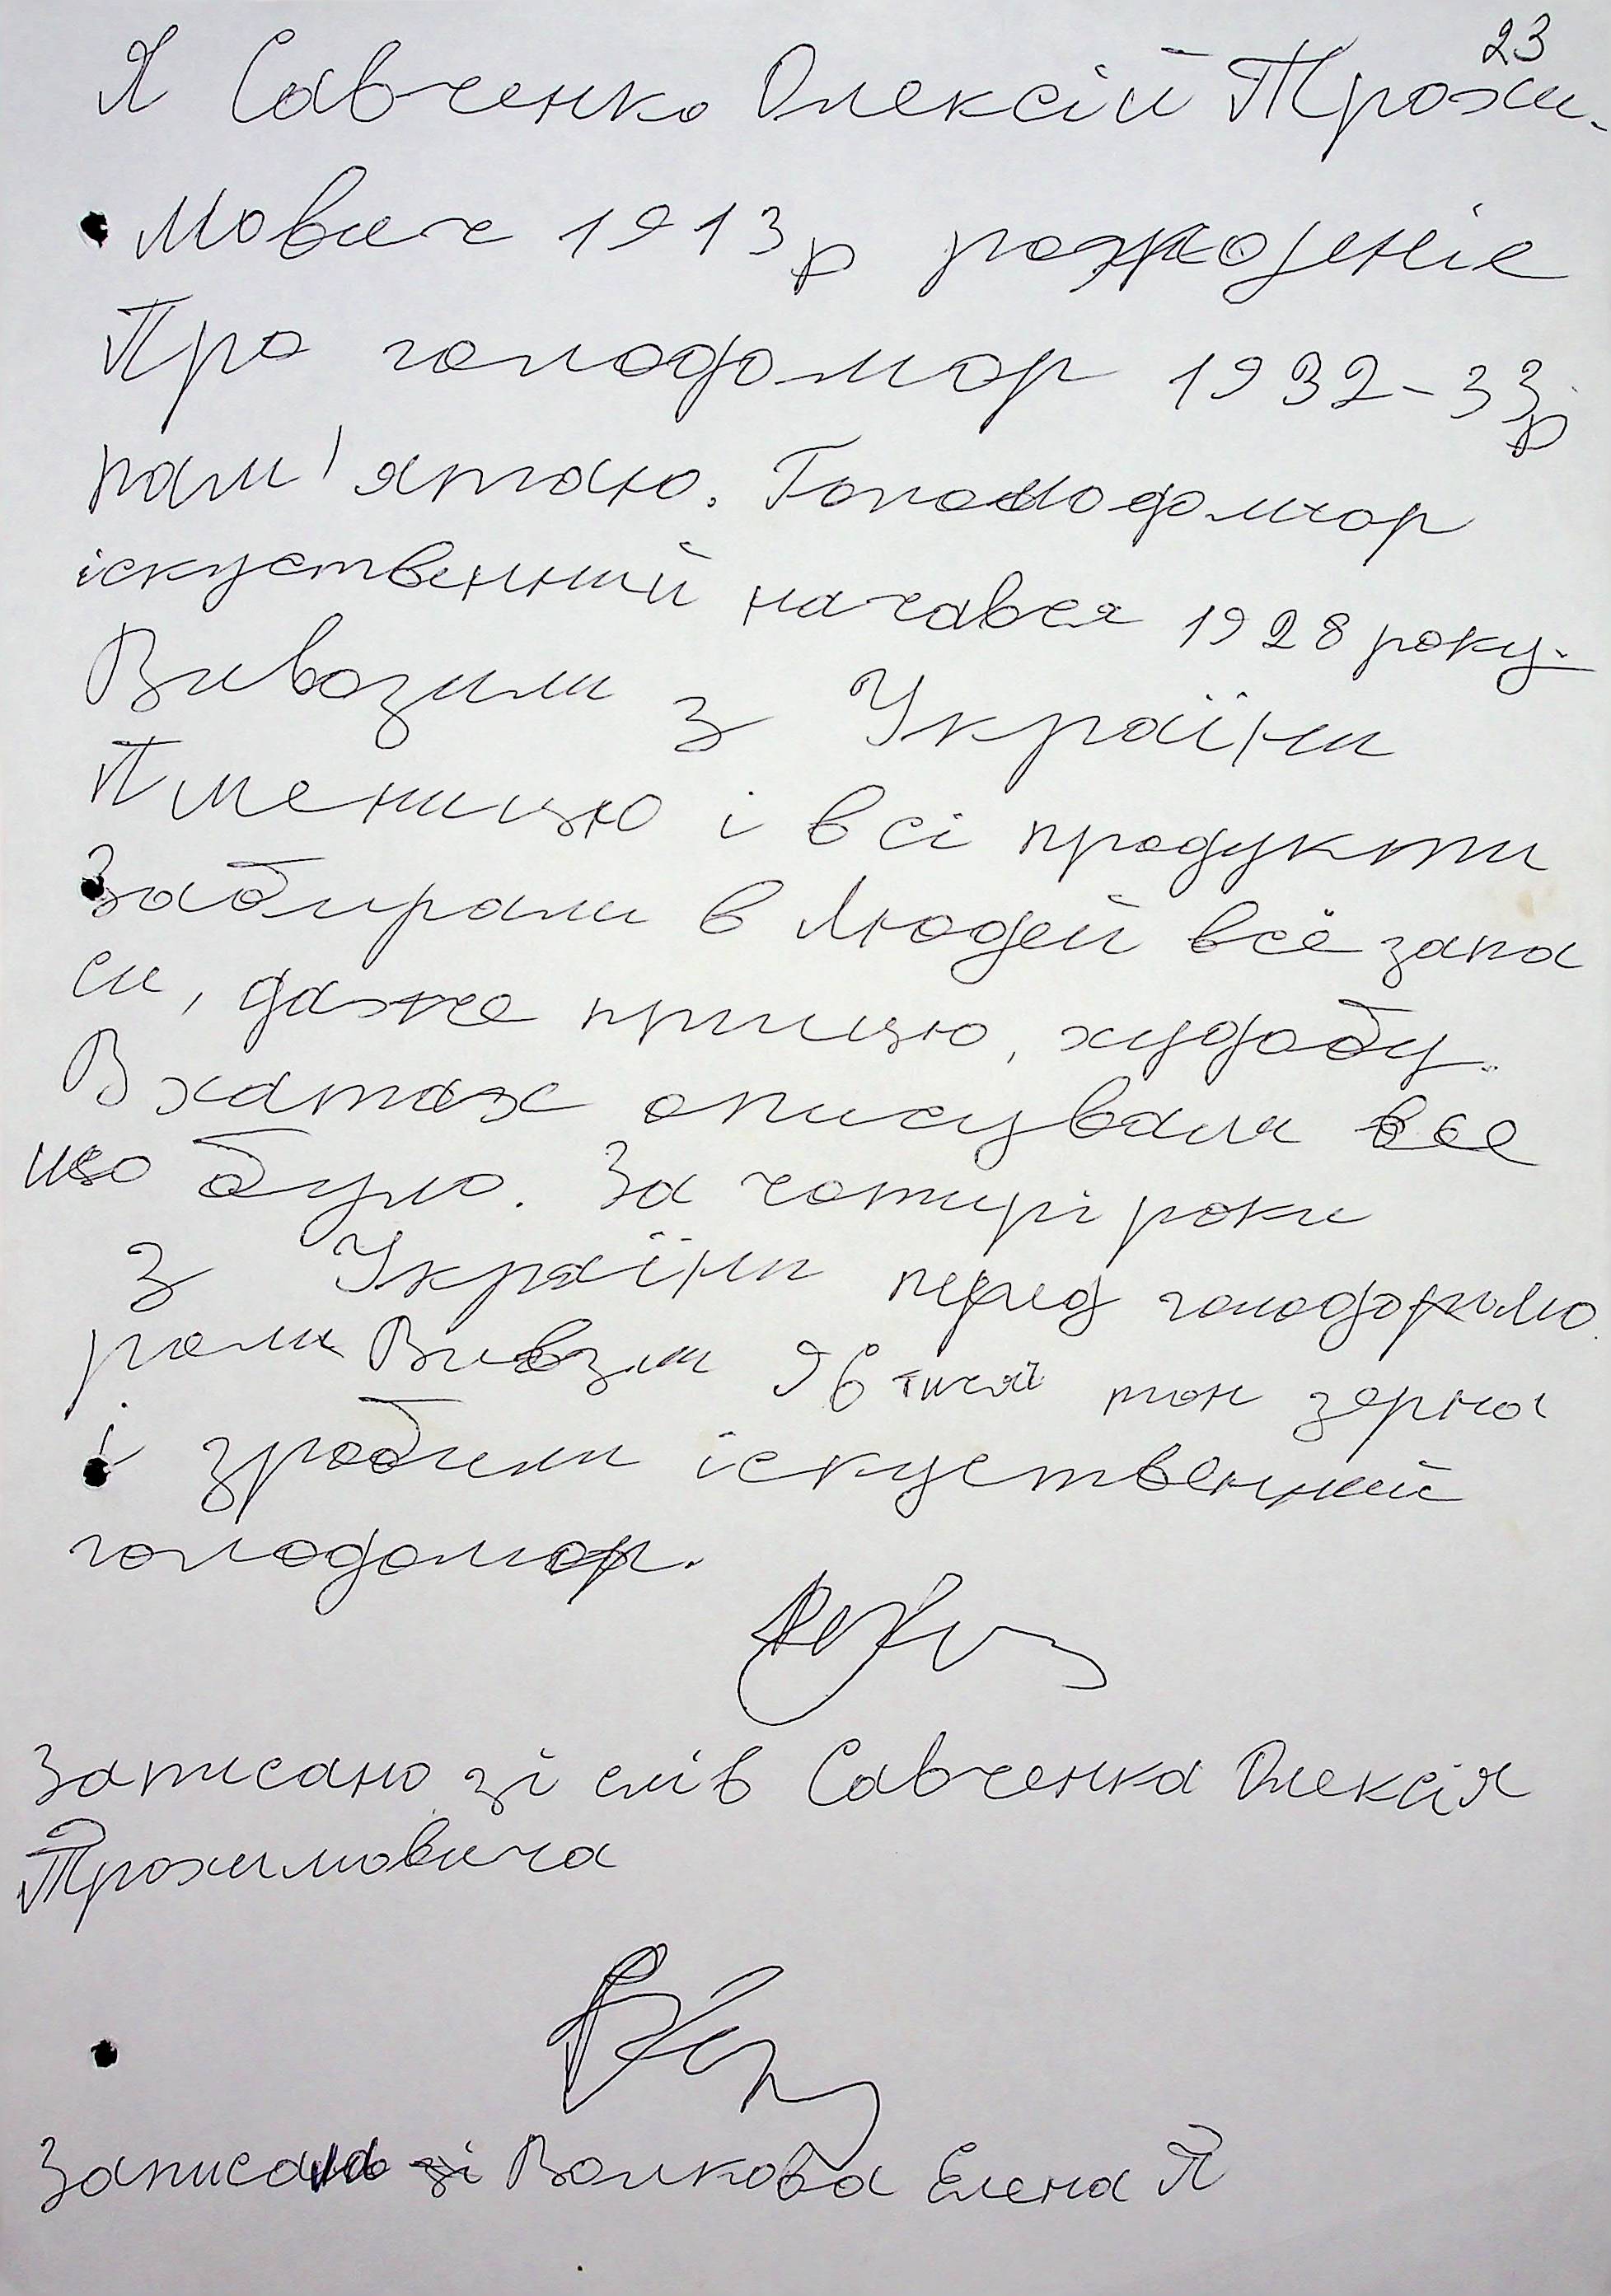 23
Я Савченко Олексій Трохи-
мович 1913р рождения
Про голодомор 1932-33р
пам'ятаю. Голодомор
іскуственний начався 1928 року.
Вивозили з України
Пшеницю і всі продукти
Забирали в людей всё запа
си, даже птицю, худобу.
В хатах описували все
що було. За чотирі роки
з України перед голодо
Вивзли 96 тисяч тон зерна
і зробили іскуственний
голодомор.
Записано зі слів Савченка Олексія
Трохимовича
Записала Волкова Елена П